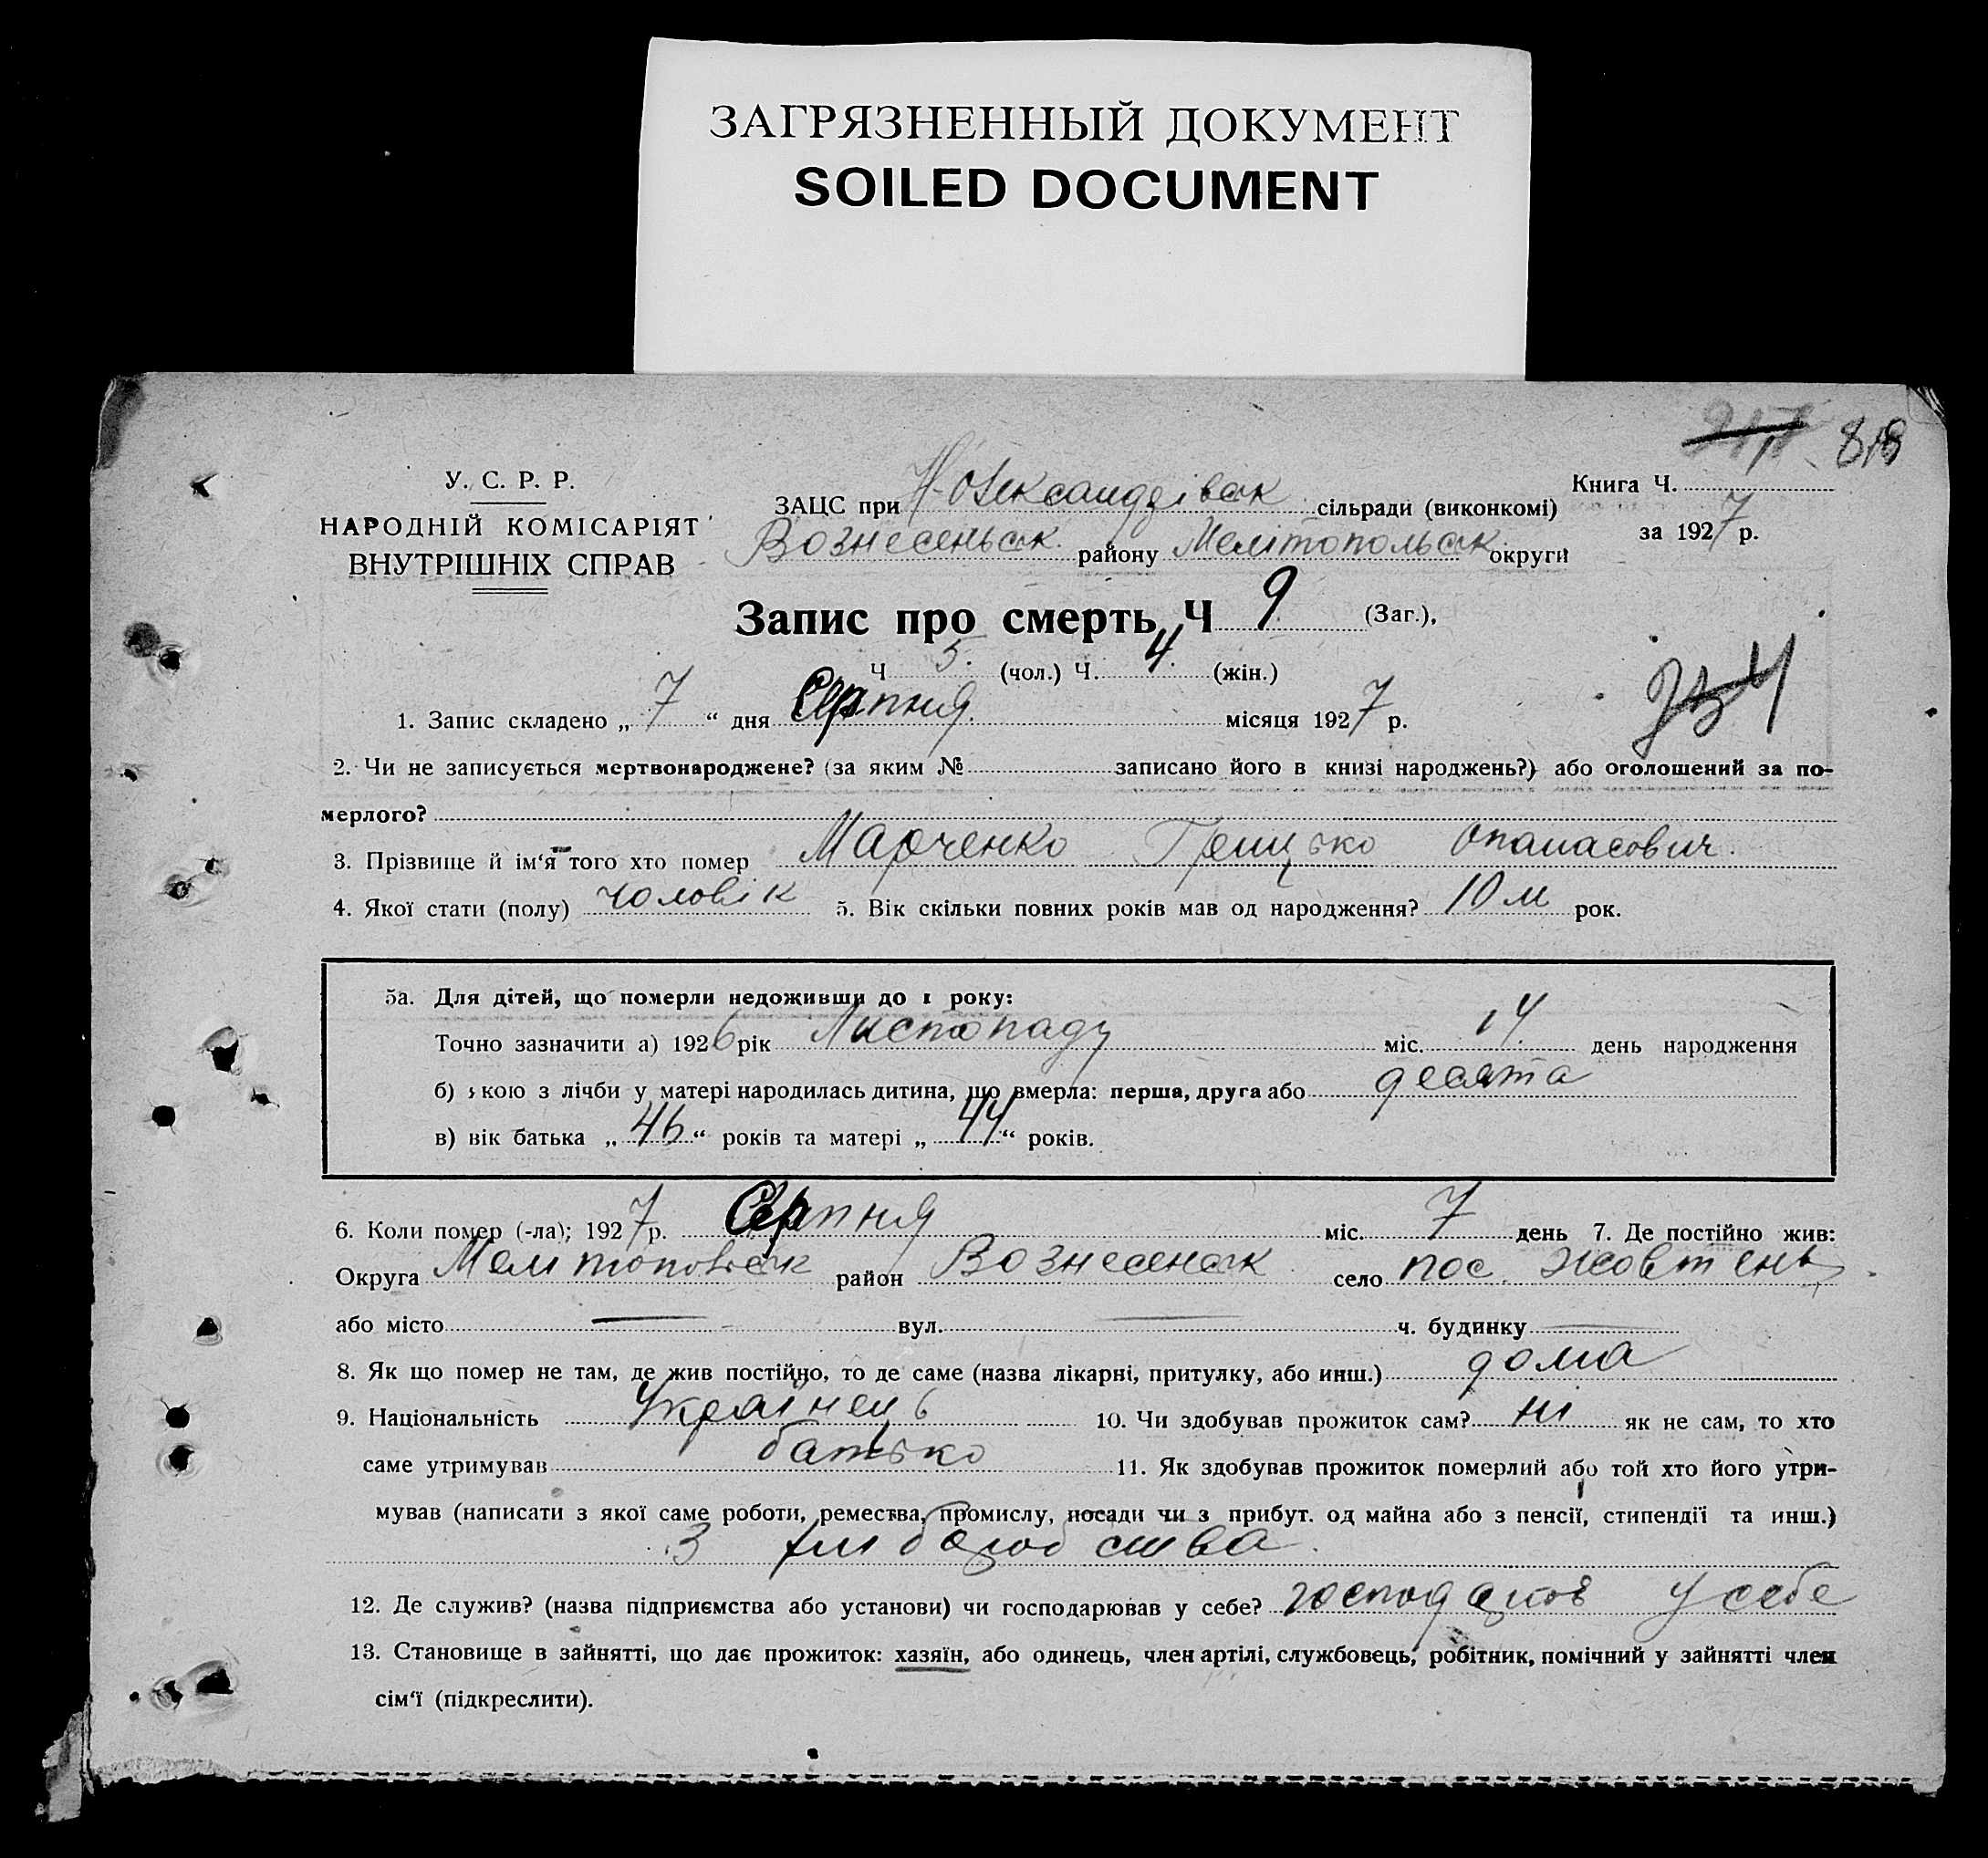 ЗАГРЯЗНЕННЫЙ ДОКУМЕНТ
SOILED DOCUMENT
88
У. С. Р. Р.
НАРОДНІЙ КОМІСАРІЯТ
ВНУТРІШНІХ СПРАВ
ЗАЦС при Н-Олександрівск сільради (виконкомі)
Вознесенськ району Мелітопольськ округи
Книга Ч.
за 1927 р.
Запис про смерть Ч 9 (Заг.),
Ч 5. (чол.) Ч. 4. (жін.)
1. Запис складено „ 7 “ дня Серпня місяця 1927 р.
2. Чи не записується мертвонароджене? (за яким № записано його в книзі народжень?) або оголошений за по-
мерлого?
3. Прізвище й ім‘я того хто помер Марченко Грицько Опанасович.
4. Якої стати (полу) чоловік 5. Вік скільки повних років мав од народження? 10 м рок.
5а. Для дітей, що померли недоживши до 1 року:
Точно зазначити а) 1926 рік Листопаду міс. 14. день народження
б) якою з лічби у матері народилась дитина, що вмерла: перша, друга або десята
в) вік батька „ 46 “ років та матері „ 44 “ років.
6. Коли помер (-ла); 1927 р. Серпня міс. 7 день 7. Де постійно жив:
Округа Мелітопольск район Вознесенск село пос. Жовтень
або місто — вул. — ч. будинку —
8. Як що помер не там, де жив постійно, то де саме (назва лікарні, притулку, або инш.) дома
9. Національність Українець 10. Чи здобував прожиток сам? ні як не сам, то хто
саме утримував батько 11. Як здобував прожиток померлий або той хто його утри-
мував (написати з якої саме роботи, ремества, промислу, посади чи з прибут. од майна або з пенсії, стипендії та инш.)
з хліборобства.
12. Де служив? (назва підприємства або установи) чи господарював у себе? господарював у себе
13. Становище в зайнятті, що дає прожиток: хазяїн, або одинець, член артілі, службовець, робітник, помічний у зайнятті член
сім‘ї (підкреслити).